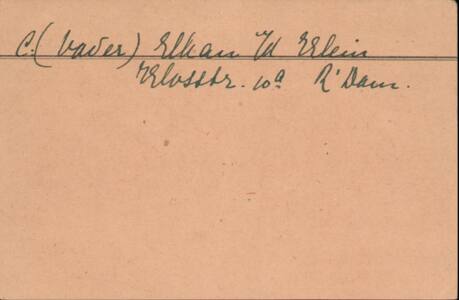 C. (Vader) Elkan Klein
Klosstr. 10a R'Dam.